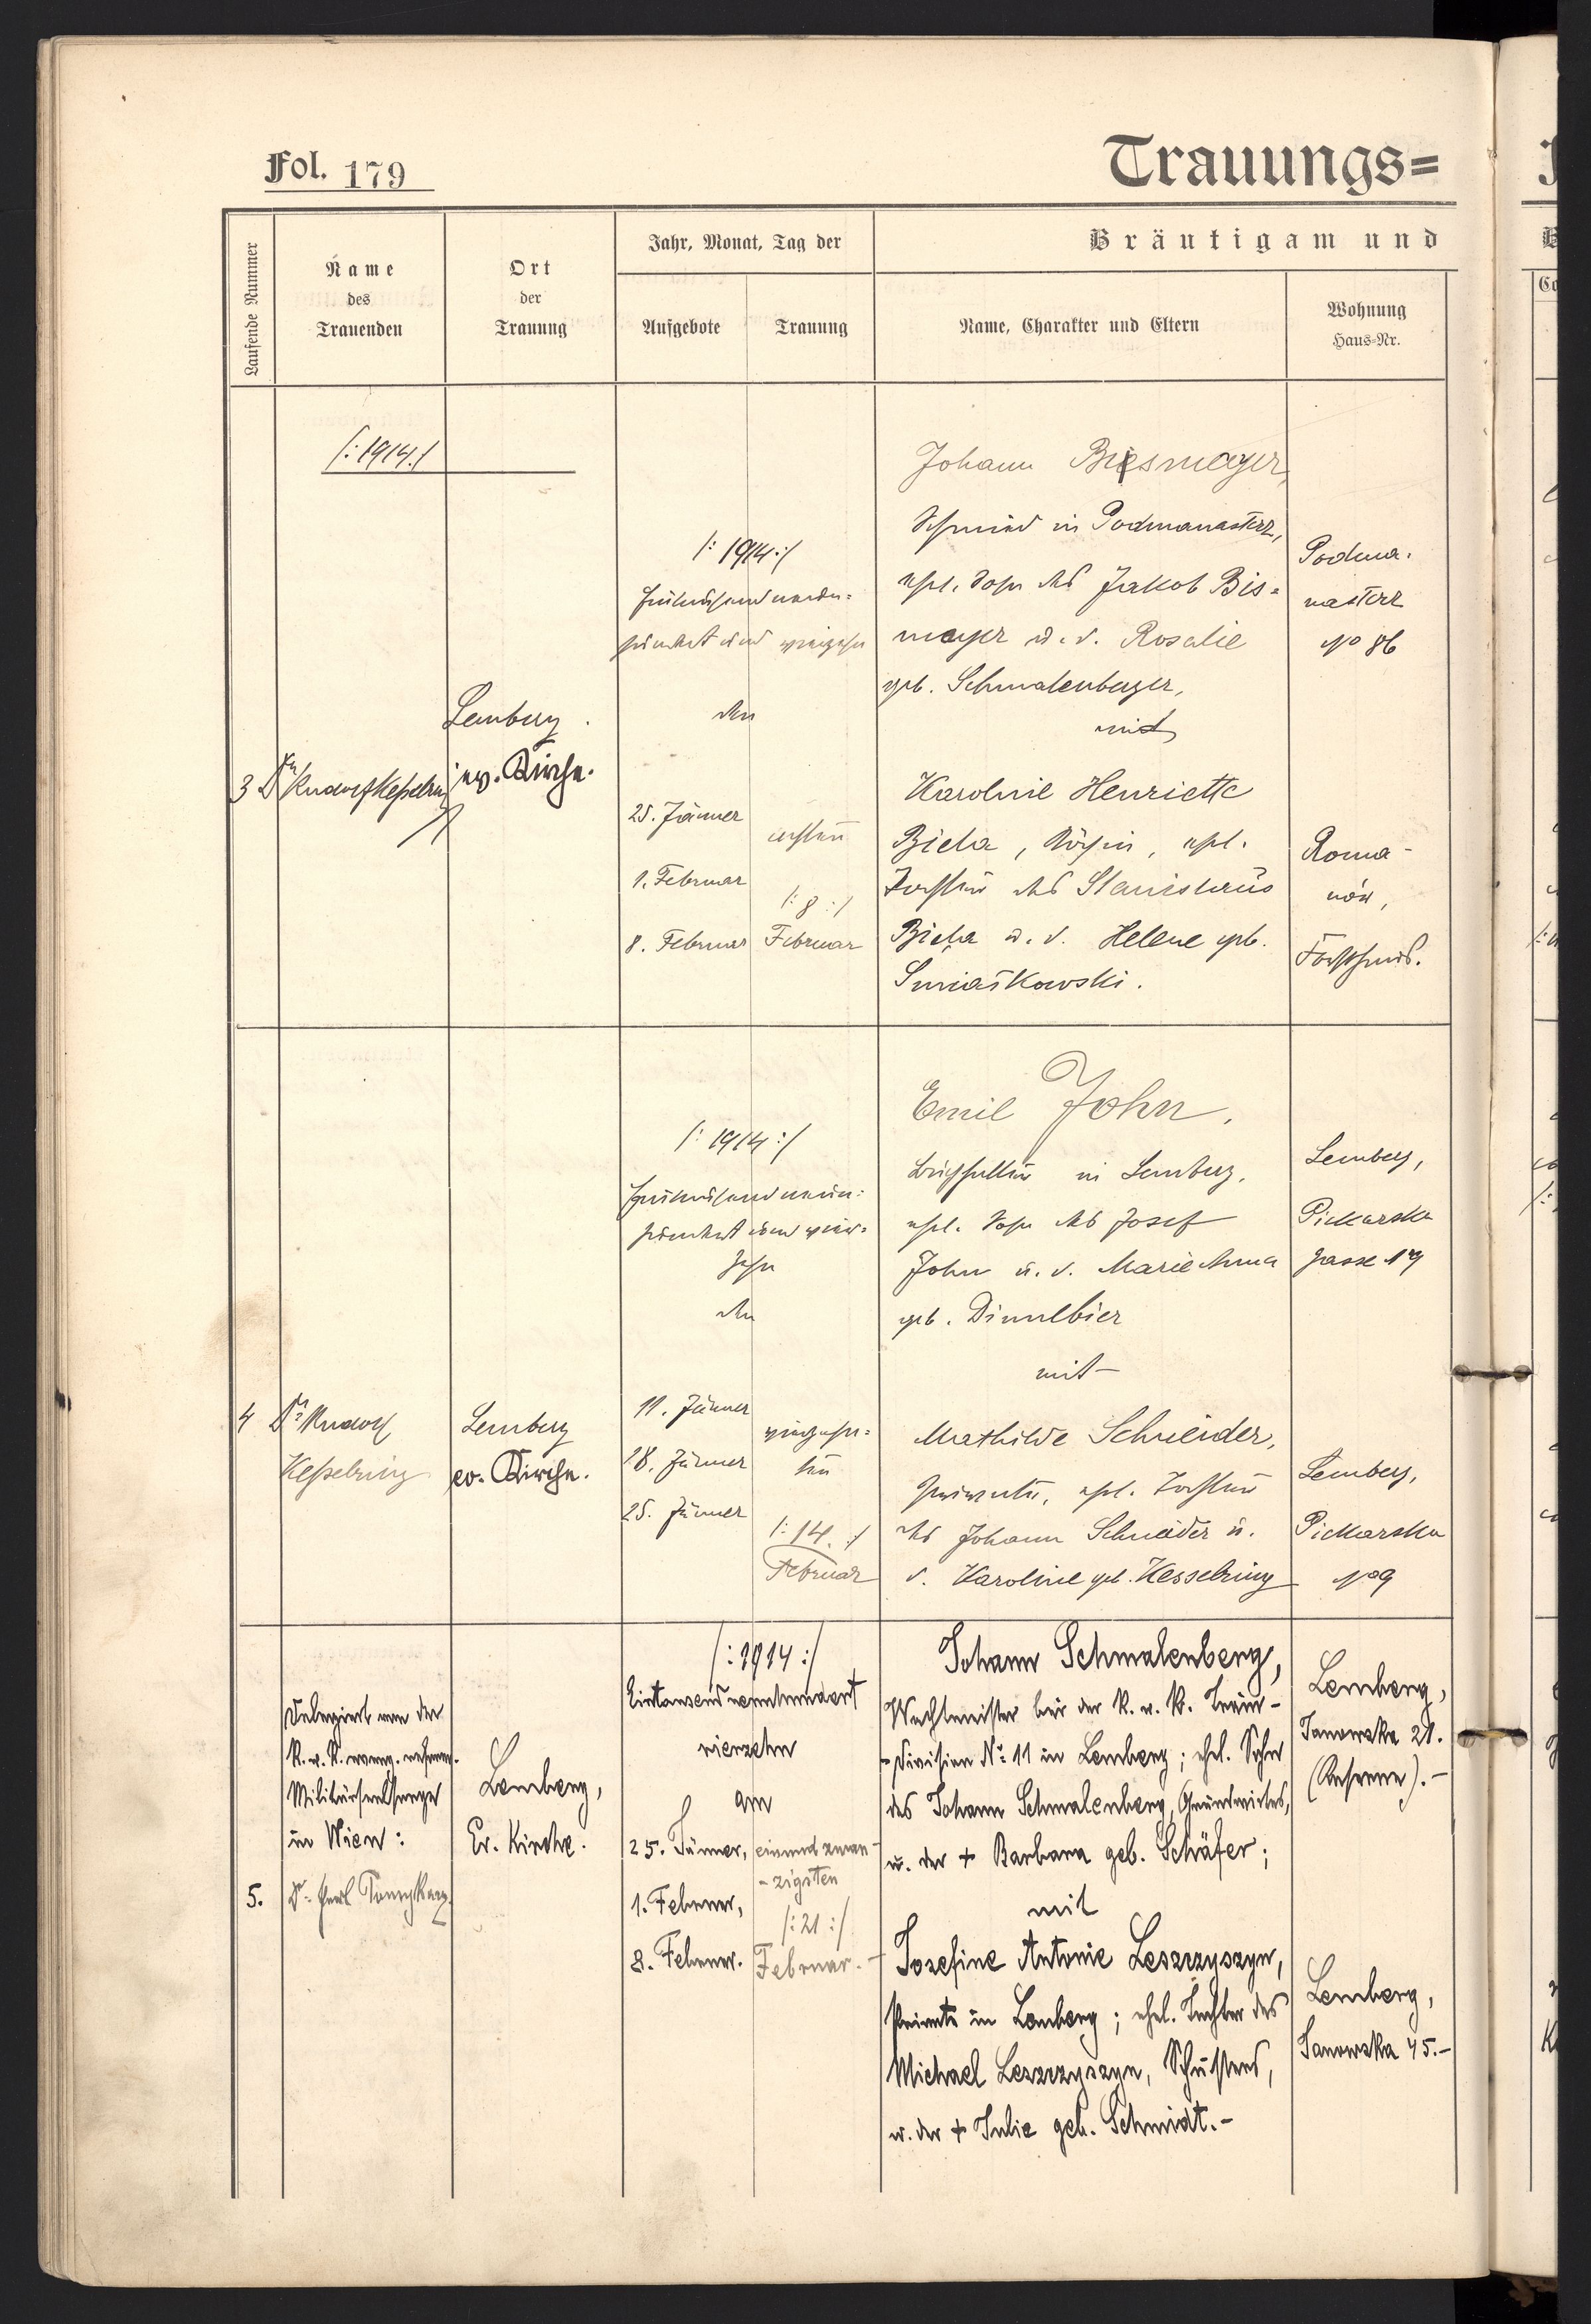 Fol. 179
Trauungs=
Laufende Nummer
Name
des
Trauenden
Ort
der
Trauung
Jahr, Monat, Tag der
Aufgebote
Trauung
Bräutigam und
Name, Charakter und Eltern
Wohnung
Haus=Nr.
/: 1914 :/
3
Dr Rudolf Kesselring
Lemberg.
ev. Kirche.
/: 1914 :/
hundert und vierzehn
den
25. Jänner
1. Februar
8. Februar
achten
/: 8 :/
Februar
Johann Bismayer,
Schmied in Podmanasterz,
ehl. Sohn des Jakob Bis=
mayer u. d. Rosalie
geb. Schmalenberger,
mit
Karoline Henriette
Biela, Köchin, ehl.
Tochter des Stanislaus
Biela u. d. Helene geb.
Smiaśkowski.
Podma-
nasterz
No 86
Roma-
nów,
Forsthaus.
4
Dr. Rudolf
Kesselring
Lemberg
ev. Kirche.
/: 1914 :/
Eintausendneun=
hundert und vier=
zehn
den
11. Jänner
18. Jänner
25. Jänner
vierzehn=
ten
/: 14. :/
Februar
Emil John,
Buchhalter in Lemberg,
ehl. Sohn des Josef
John u. d. Marie Anna
geb. Dimelbier
mit
Mathilde Schneider,
Private, ehl. Tochter
des Johann Schneider u.
d. Karoline geb. Kesselring
Lemberg,
Piekarska
gasse 19
Lemberg,
Piekarska
No 9
5.
Delegiert von der
k. u. k. evang.
Militärseelsorge
in Wien:
Dr.
Lemberg,
Ev. Kirche.
/: 1914 :/
Eintausendneunhundert
vierzehn
am
25. Jänner,
1. Februar,
8. Februar.
einundzwan-
-zigsten
/: 21 :/
Februar. -
Johann Schmalenberg,
Wachtmeister bei der k. u. k. Train-
-Division No 11 in Lemberg; ehel. Sohn
des Johann Schmalenberg, Grundwirtes,
u. der + Barbara geb. Schäfer;
mit
Josefine Antonie Leszczyszyn,
Private in Lemberg; ehel. Tochter des
Michael Leszczyszyn, Schusters,
u. der + Julie geb. Schmidt. -
Lemberg,
Janowska 21.
(Kaserne). -
Lemberg,
Janowska 45. -